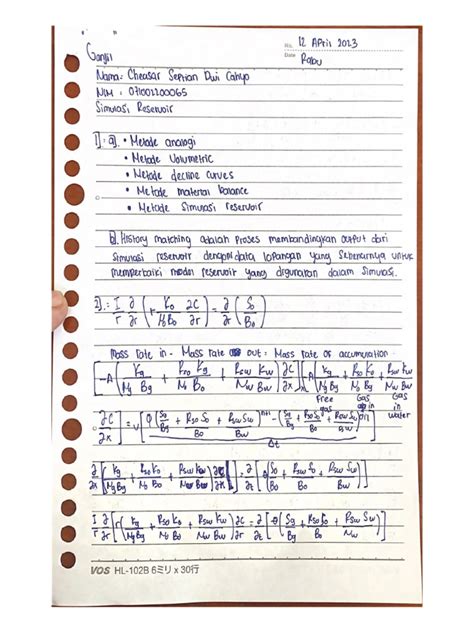 No. 12 April 2023
Ganjil
Date Rabu
Nama: Cheasar Septian Dwi Cahyo
NIM : 071002200065
Simulasi Reservoir
1]. a]. • Metode analogi
• Metode Volumetric
• Metode decline curves
• Metode material balance
• Metode Simulasi reservoir
b]. History matching adalah proses membandingkan output dari
simulasi reservoir dengan data lapangan yang sebenarnya untuk
memperbaiki model reservoir yang digunakan dalam simulasi.
2]. : 1/r ∂/∂r (r Ko/(μo Bo) ∂C/∂r) = ∂/∂r (So/Bo)
Mass rate in - Mass rate out = Mass rate of accumulation
[-A(kg/(μg Bg) + Rso ko/(μo Bo) + Rsw kw/(μw Bw)) ∂C/∂x] - [-A(kg/(μg Bg) + Rso ko/(μo Bo) + Rsw kw/(μw Bw))
Free gas Gas in oil Gas in water
∂C/∂x] = V [Ø(Sg/Bg + Rso So/Bo + Rsw Sw/Bw)ⁿ⁺¹ - (Sg/Bg + Rso So/Bo + Rsw Sw/Bw)] / Δt
∂/∂x [(kg/(μg Bg) + Rso ko/(μo Bo) + Rsw kw/(μw Bw)) ∂C/∂x] = ∂/∂t [Ø(Sg/Bg + Rso So/Bo + Rsw Sw/Bw)]
1/r ∂/∂r [r(kg/(μg Bg) + Rso ko/(μo Bo) + Rsw kw/(μw Bw)) ∂C/∂r] = ∂/∂t [Ø(Sg/Bg + Rso So/Bo + Rsw Sw/Bw)]
VOS HL-102B 6ミリ x 30行